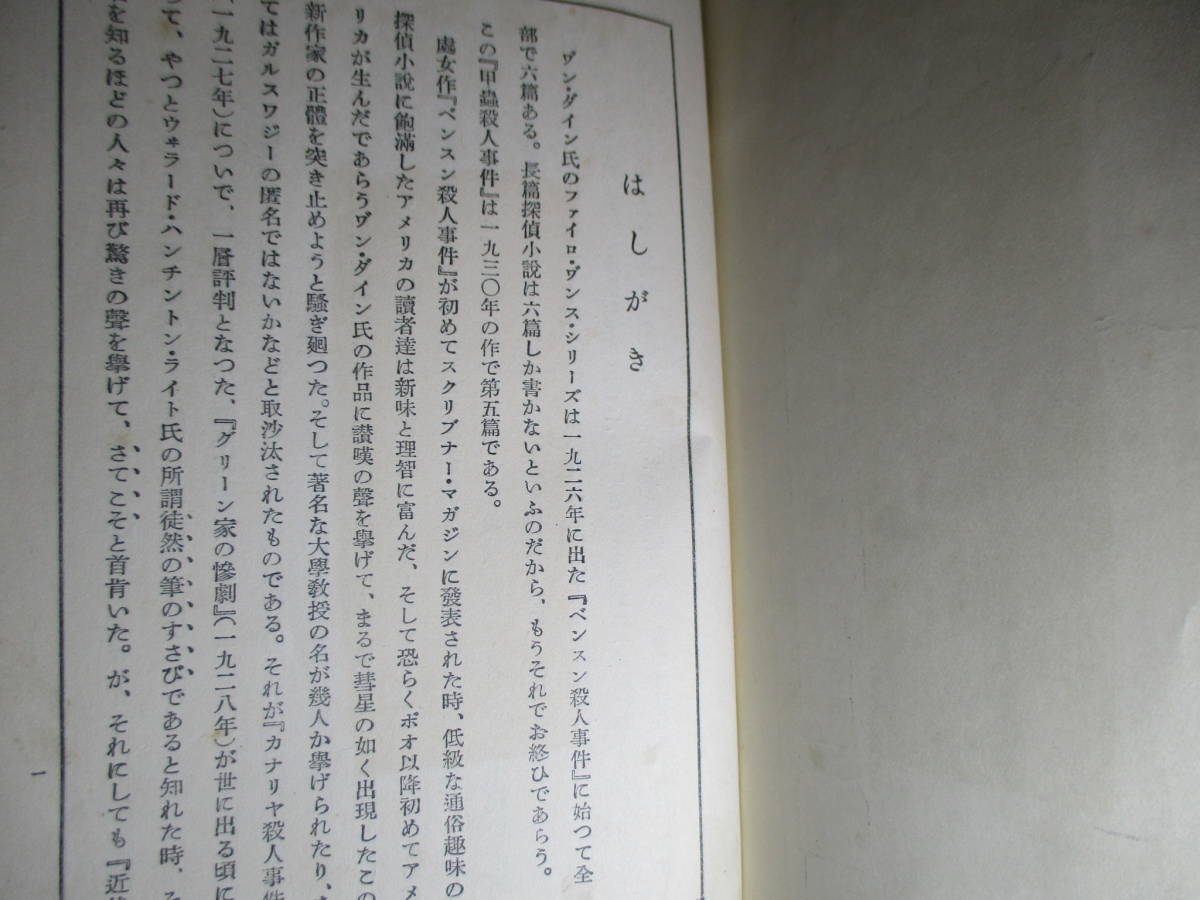 はしがき
ヷン・ダイン氏のファイロ・ヷンス・シリーズは一九二六年に出た『ベンスン殺人事件』に始つて全
部で六篇ある。長篇探偵小說は六篇しか書かないといふのだから、もうそれでお終ひであらう。
この『甲蟲殺人事件』は一九三〇年の作で第五篇である。
處女作『ベンスン殺人事件』が初めてスクリブナー・マガジンに發表された時、低級な通俗趣味の
探偵小說に飽滿したアメリカの讀者達は新味と理智に富んだ、そして恐らくポオ以降初めてアメ
リカが生んだであらうヷン・ダイン氏の作品に讃嘆の聲を擧げて、まるで彗星の如く出現したこの
新作家の正體を突き止めようと騷ぎ廻つた。そして著名な大學敎授の名が幾人か擧げられたり、
てはガルスワジーの匿名ではないかなどと取沙汰されたものである。それが『カナリヤ殺人事件
（一九二七年）についで、一層評判となつた、『グリーン家の慘劇』（一九二八年）が世に出る頃に
て、やつとウヰラード・ハンチントン・ライト氏の所謂徒然の筆のすさびであると知れた時、そ
を知るほどの人々は再び驚きの聲を擧げて、さてこそと首肯いた。が、それにしても『近
一